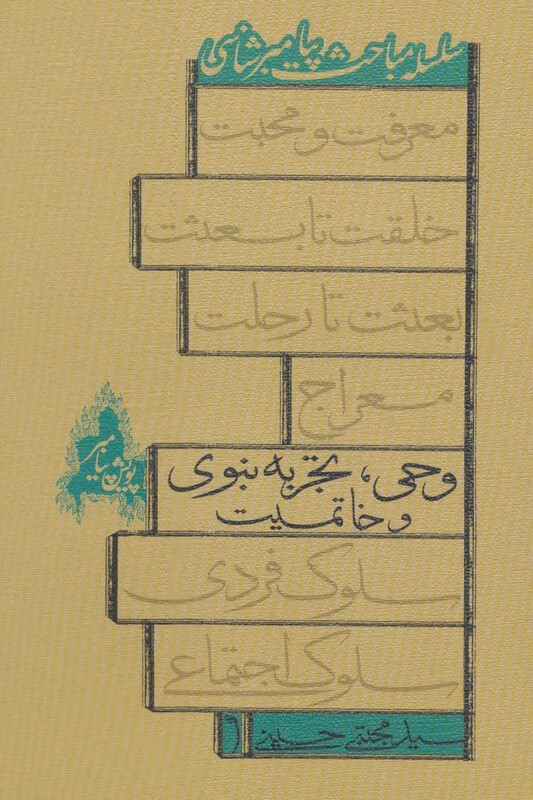 سلسله مباحث پیامبرشناسی
معرفت و محبت
خلقت تا بعثت
بعثت تا رحلت
معراج
وحی، تجربه نبوی
و خاتمیت
پویش پیامبر
سلوک فردی
سلوک اجتماعی
سید مجتبی حسینی